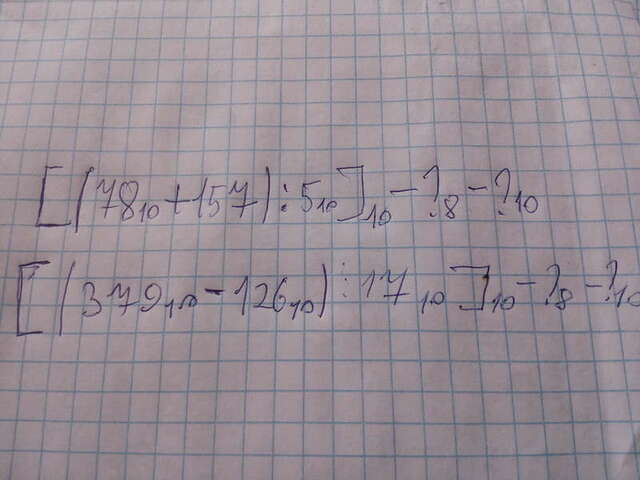 [(78₁₀+157):5₁₀]₁₀-?₈-?₁₀
[(379₁₀-126₁₀):17₁₀]₁₀-?₈-?₁₀